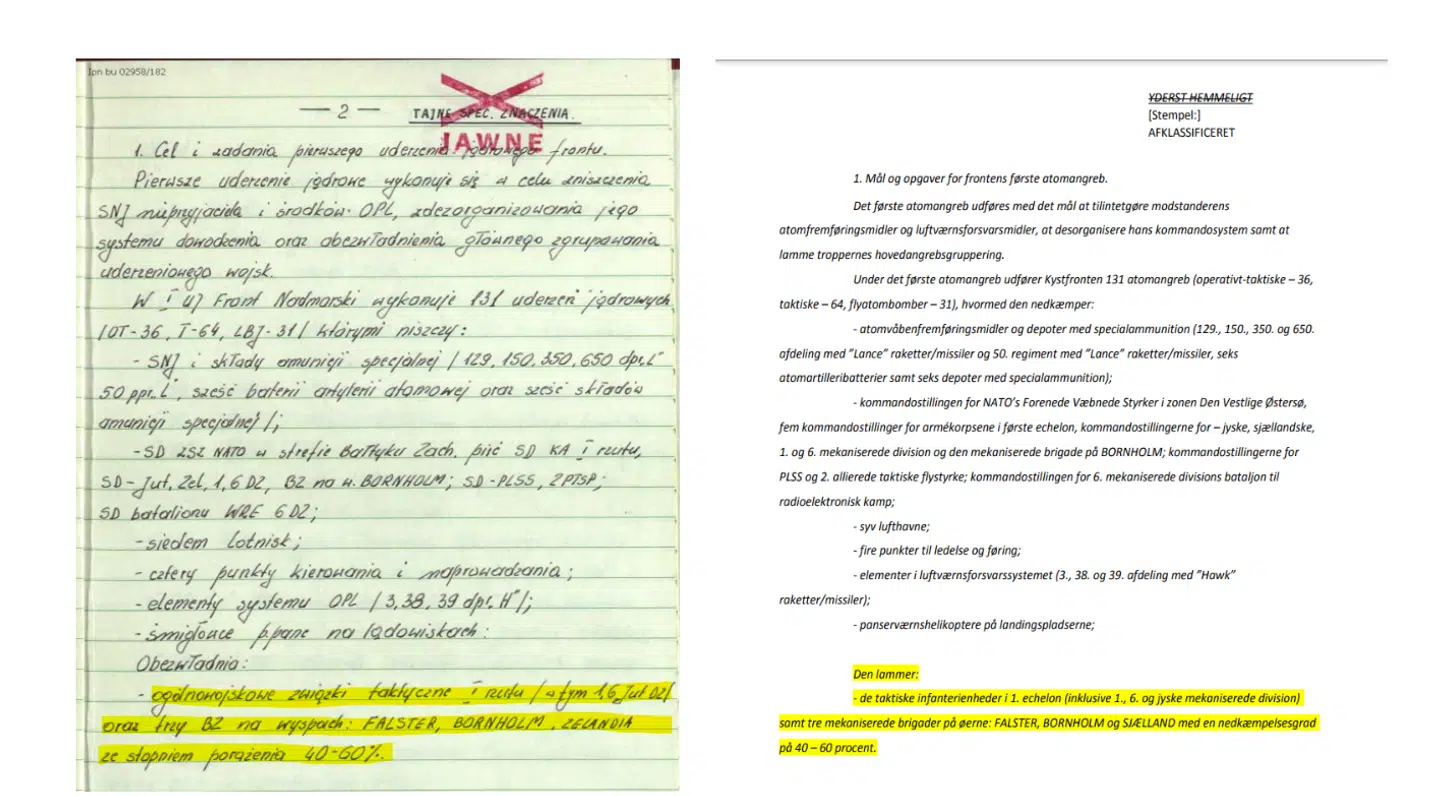 Ipn bu 02958/182
— 2 — TAJNE SPEC. ZNACZENIA.
JAWNE
1. Cel i zadania pierwszego uderzenia jądrowego frontu.
Pierwsze uderzenie jądrowe wykonuje się w celu zniszczenia
SNJ nieprzyjaciela i środków OPL, zdezorganizowania jego
systemu dowodzenia oraz obezwładnienia głównego zgrupowania
uderzeniowego wojsk.
W I UJ Front Nadmorski wykonuje 131 uderzeń jądrowych
/OT-36, T-64, LBJ-31/ którymi niszczy:
- SNJ i składy amunicji specjalnej /129, 150, 350, 650 dpr. L"
50 ppr. L", sześć baterii artylerii atomowej oraz sześć składów
amunicji specjalnej/;
- SD ZSZ NATO w strefie Bałtyku Zach. pięć SD KA I rzutu,
SD-Jut, Zel, 1, 6 DZ, BZ na w. BORNHOLM; SD-PLSS, 2PTSP;
SD batalionu WRE 6DZ;
- siedem lotnisk;
- cztery punkty kierowania i naprowadzania;
- elementy systemu OPL /3, 38, 39 dpr. H"/;
- śmigłowce p.panc na lądowiskach:
Obezwładnia:
- ogólnowojskowe związki taktyczne I rzutu /w tym 1, 6, Jut DZ/
oraz trzy BZ na wyspach: FALSTER, BORNHOLM, ZELANDIA
ze stopniem porażenia 40-60%.
YDERST HEMMELIGT
[Stempel:]
AFKLASSIFICERET
1. Mål og opgaver for frontens første atomangreb.
Det første atomangreb udføres med det mål at tilintetgøre modstanderens
atomfremføringsmidler og luftværnsforsvarsmidler, at desorganisere hans kommandosystem samt at
lamme troppernes hovedangrebsgruppering.
Under det første atomangreb udfører Kystfronten 131 atomangreb (operativt-taktiske – 36,
taktiske – 64, flyatombomber – 31), hvormed den nedkæmper:
- atomvåbenfremføringsmidler og depoter med specialammunition (129., 150., 350. og 650.
afdeling med ”Lance” raketter/missiler og 50. regiment med ”Lance” raketter/missiler, seks
atomartilleribatterier samt seks depoter med specialammunition);
- kommandostillingen for NATO’s Forenede Væbnede Styrker i zonen Den Vestlige Østersø,
fem kommandostillinger for armékorpsene i første echelon, kommandostillingerne for – jyske, sjællandske,
1. og 6. mekaniserede division og den mekaniserede brigade på BORNHOLM; kommandostillingerne for
PLSS og 2. allierede taktiske flystyrke; kommandostillingen for 6. mekaniserede divisions bataljon til
radioelektronisk kamp;
- syv lufthavne;
- fire punkter til ledelse og føring;
- elementer i luftværnsforsvarssystemet (3., 38. og 39. afdeling med ”Hawk”
raketter/missiler);
- panserværnshelikoptere på landingspladserne;
Den lammer:
- de taktiske infanterienheder i 1. echelon (inklusive 1., 6. og jyske mekaniserede division)
samt tre mekaniserede brigader på øerne: FALSTER, BORNHOLM og SJÆLLAND med en nedkæmpelsesgrad
på 40 – 60 procent.